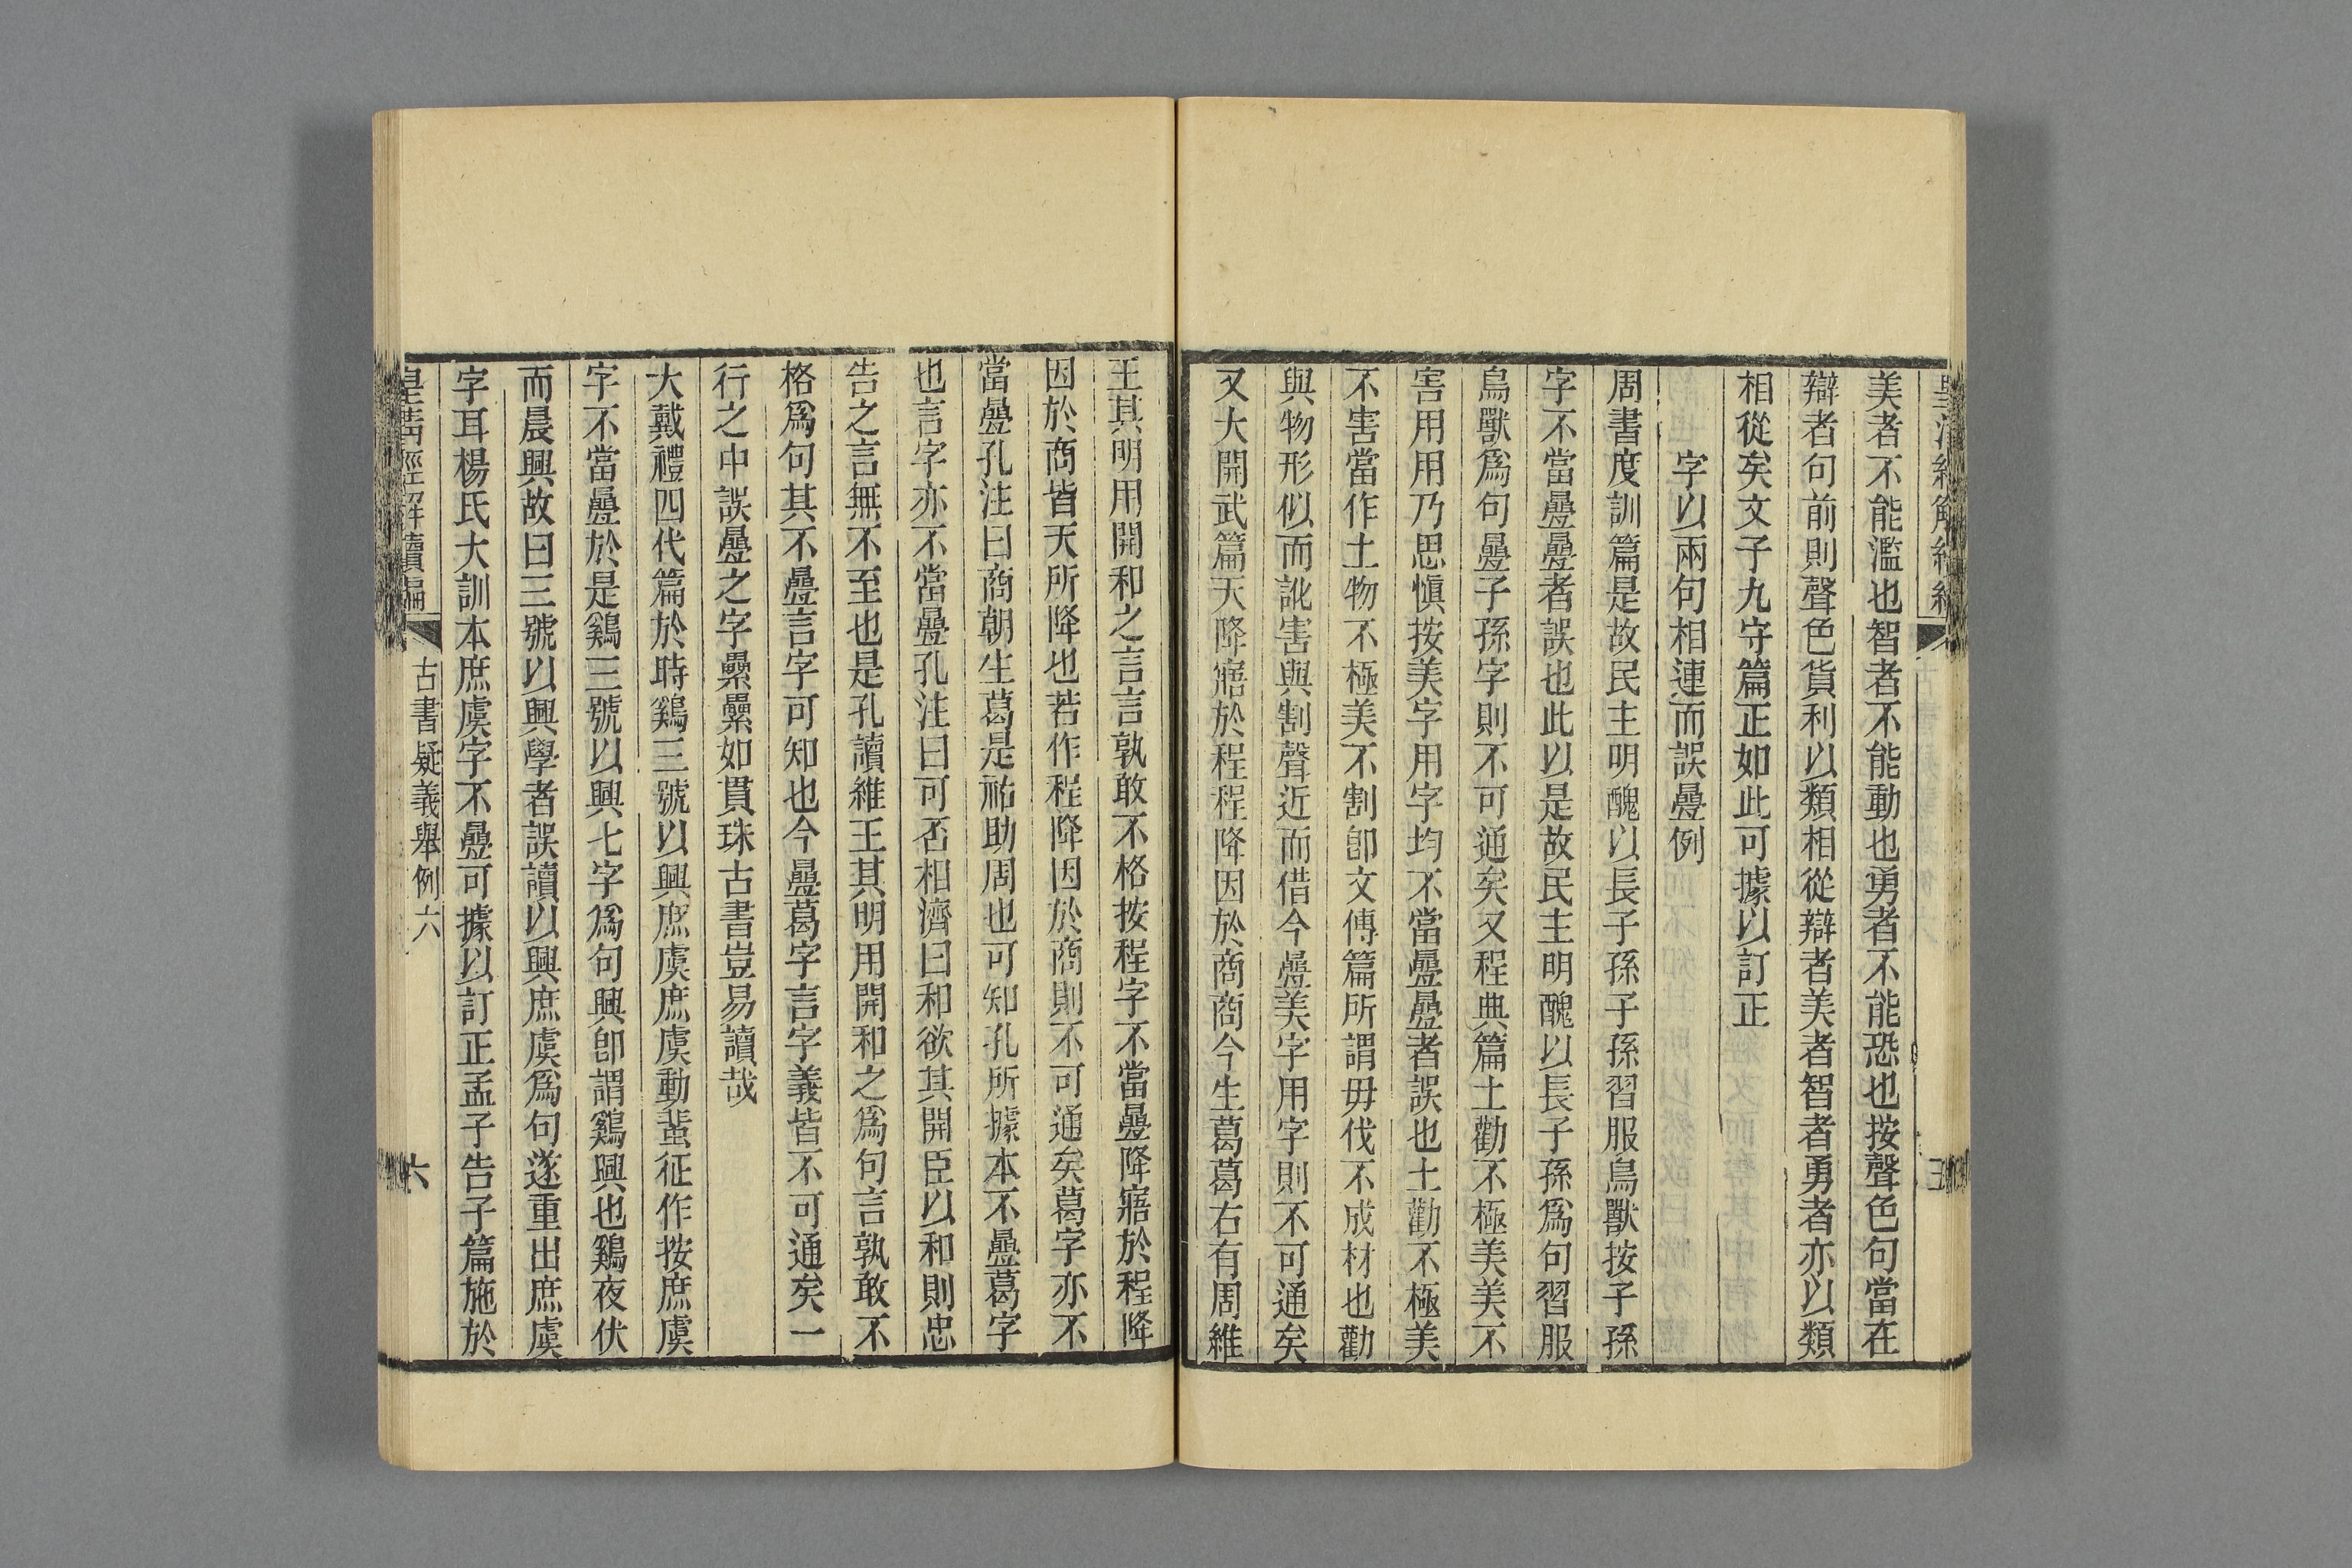 美者不能濫也智者不能動也勇者不能恐也按聲色句當在
辯者句前則聲色貨利以類相從辯者美者智者勇者亦以類
相從矣文子九守篇正如此可據以訂正
字以兩句相連而誤疊例
周書度訓篇是故民主明醜以長子孫子孫習服鳥獸按子孫
字不當疊疊者誤也此以是故民主明醜以長子孫爲句習服
鳥獸爲句疊子孫字則不可通矣又程典篇土勸不極美美不
害用用乃思愼按美字用字均不當疊疊者誤也土勸不極美
不害當作土物不極美不割卽文傳篇所謂毋伐不成材也勸
與物形似而訛害與割聲近而借今疊美字用字則不可通矣
又大開武篇天降寤於程程降因於商商今生葛葛右有周維
王其明用開和之言言孰敢不格按程字不當疊降寤於程降
因於商皆天所降也若作程降因於商則不可通矣葛字亦不
當疊孔注曰商朝生葛是祐助周也可知孔所據本不疊葛字
也言字亦不當疊孔注曰可否相濟曰和欲其開臣以和則忠
告之言無不至也是孔讀維王其明用開和之爲句言孰敢不
格爲句其不疊言字可知也今疊葛字言字義皆不可通矣一
行之中誤疊之字纍纍如貫珠古書豈易讀哉
大戴禮四代篇於時鷄三號以興庶虞庶虞動蜚征作按庶虞
字不當疊於是鷄三號以興七字爲句興卽謂鷄興也鷄夜伏
而晨興故曰三號以興學者誤讀以興庶虞爲句遂重出庶虞
字耳楊氏大訓本庶虞字不疊可據以訂正孟子告子篇施於
皇清經解續編 古書疑義舉例六 六